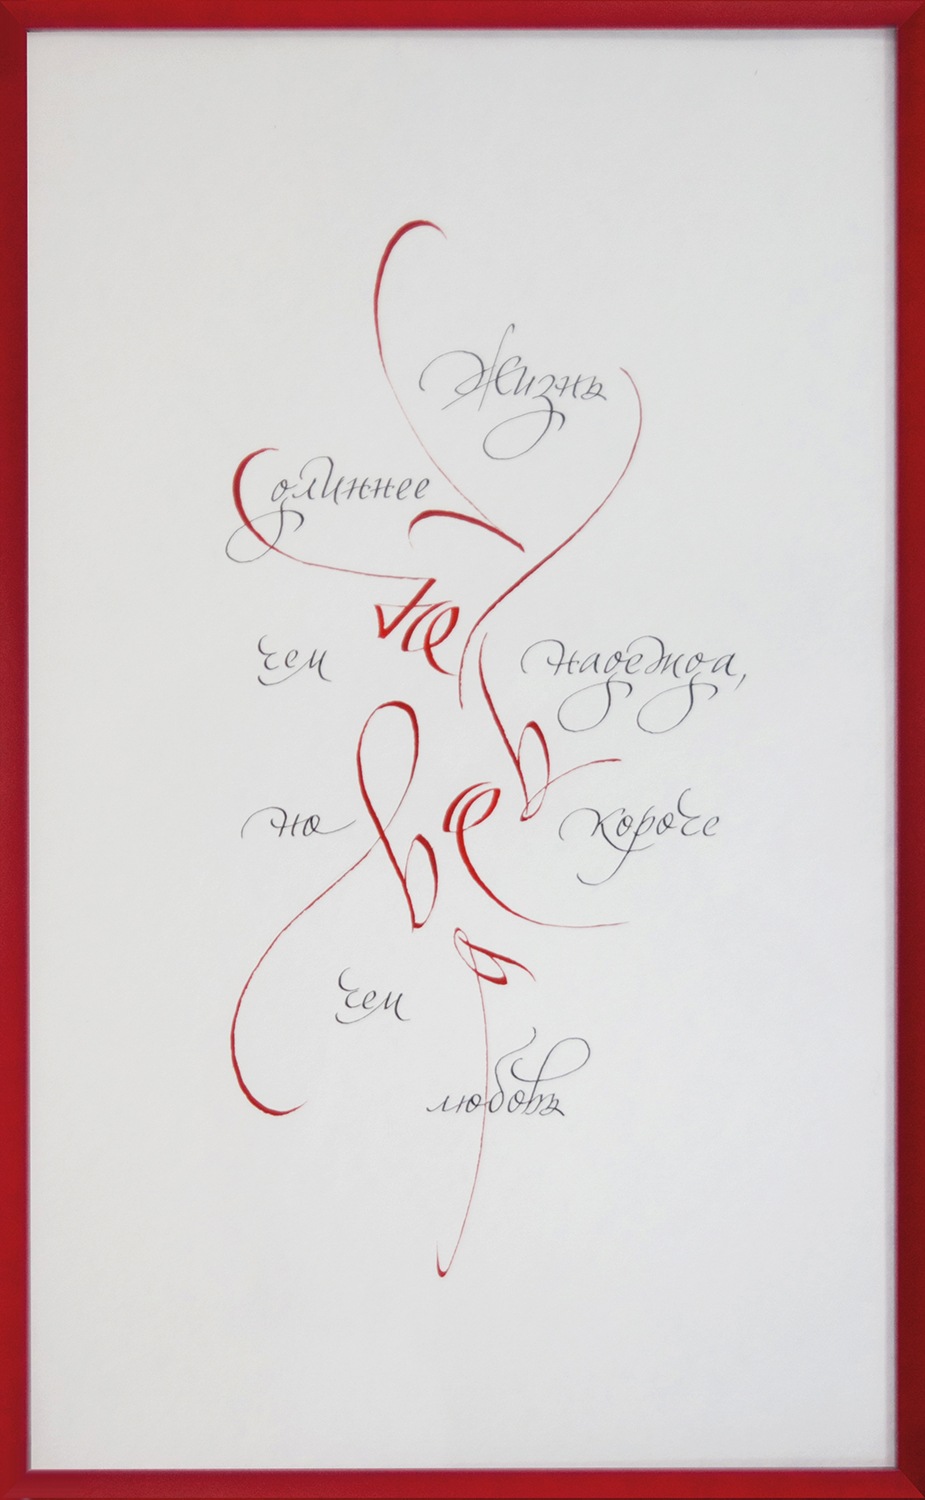 Жизнь
длиннее
чем надежда,
но короче
чем
любовь